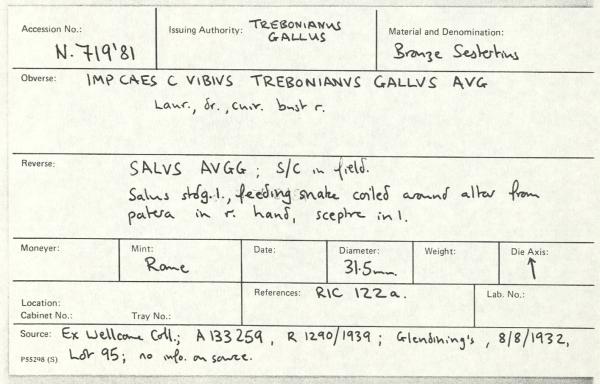 Accession No.: N.719'81
Issuing Authority: TREBONIANUS
GALLUS
Material and Denomination:
Bronze Sestertius
Obverse: IMP CAES C VIBIVS TREBONIANVS GALLVS AVG
Laur., dr., cuir. bust r.
Reverse: SALVS AVGG; S/C in field.
Salus stdg. l., feeding snake coiled around altar from
patera in r. hand, sceptre in l.
Moneyer:
Mint:
Rome
Date:
Diameter:
31.5mm.
Weight:
Die Axis:
↑
Location:
Cabinet No.: Tray No.:
References: RIC 122a.
Lab. No.:
Source: Ex Wellcome Coll.; A 133259, R 1290/1939; Glendining's, 8/8/1932,
P55298 (S) Lot 95; no info. on source.